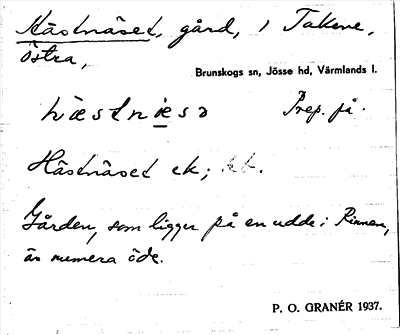 Hästnäset, gård, i Takene,
Östra,
Brunskogs sn, Jösse hd, Värmlands l.
hæstnesə Prep. på.
Hästnäset ek;
Gården, som ligger på en udde i Rinnen,
är numera öde.
P. O. GRANÉR 1937.